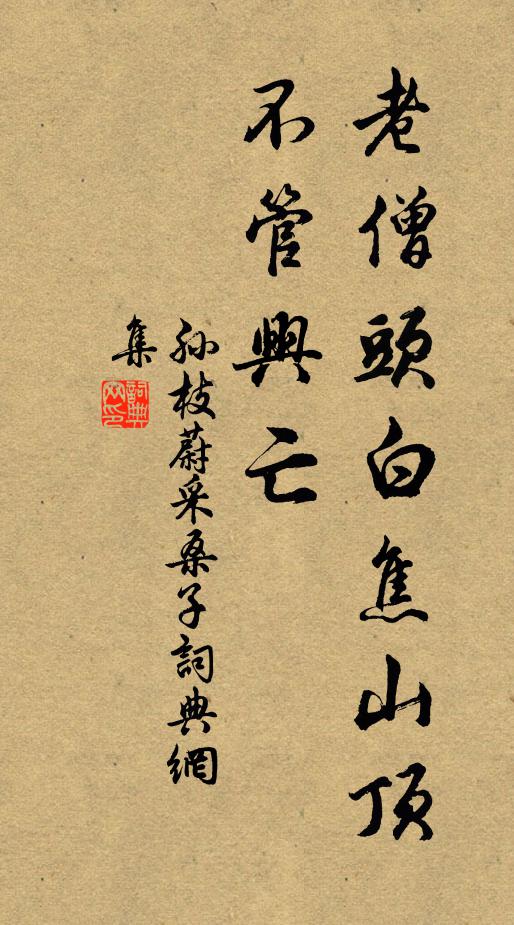 老僧頭白焦山頂
不管興亡
孙枝蔚采桑子詞典網
集
詞典网印